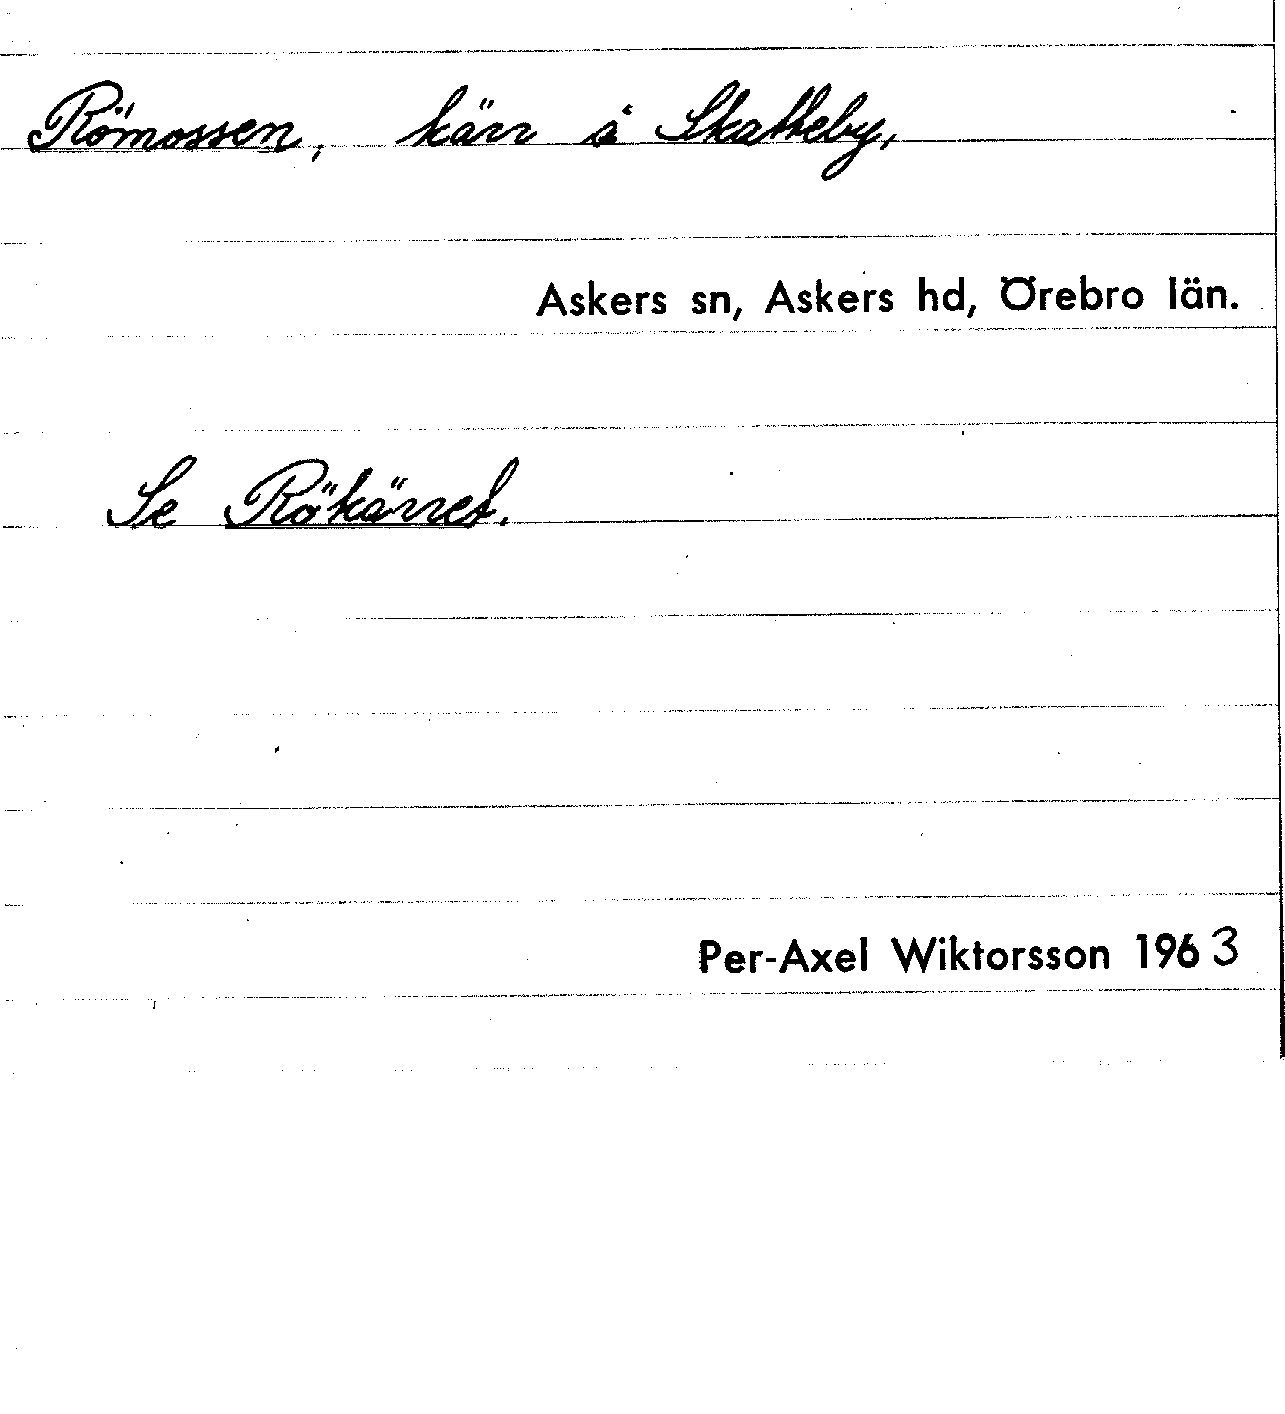 Römossen, kärr å Skatteby,
Askers sn, Askers hd, Örebro län.
Se Rökärret.
Per-Axel Wiktorsson 1963